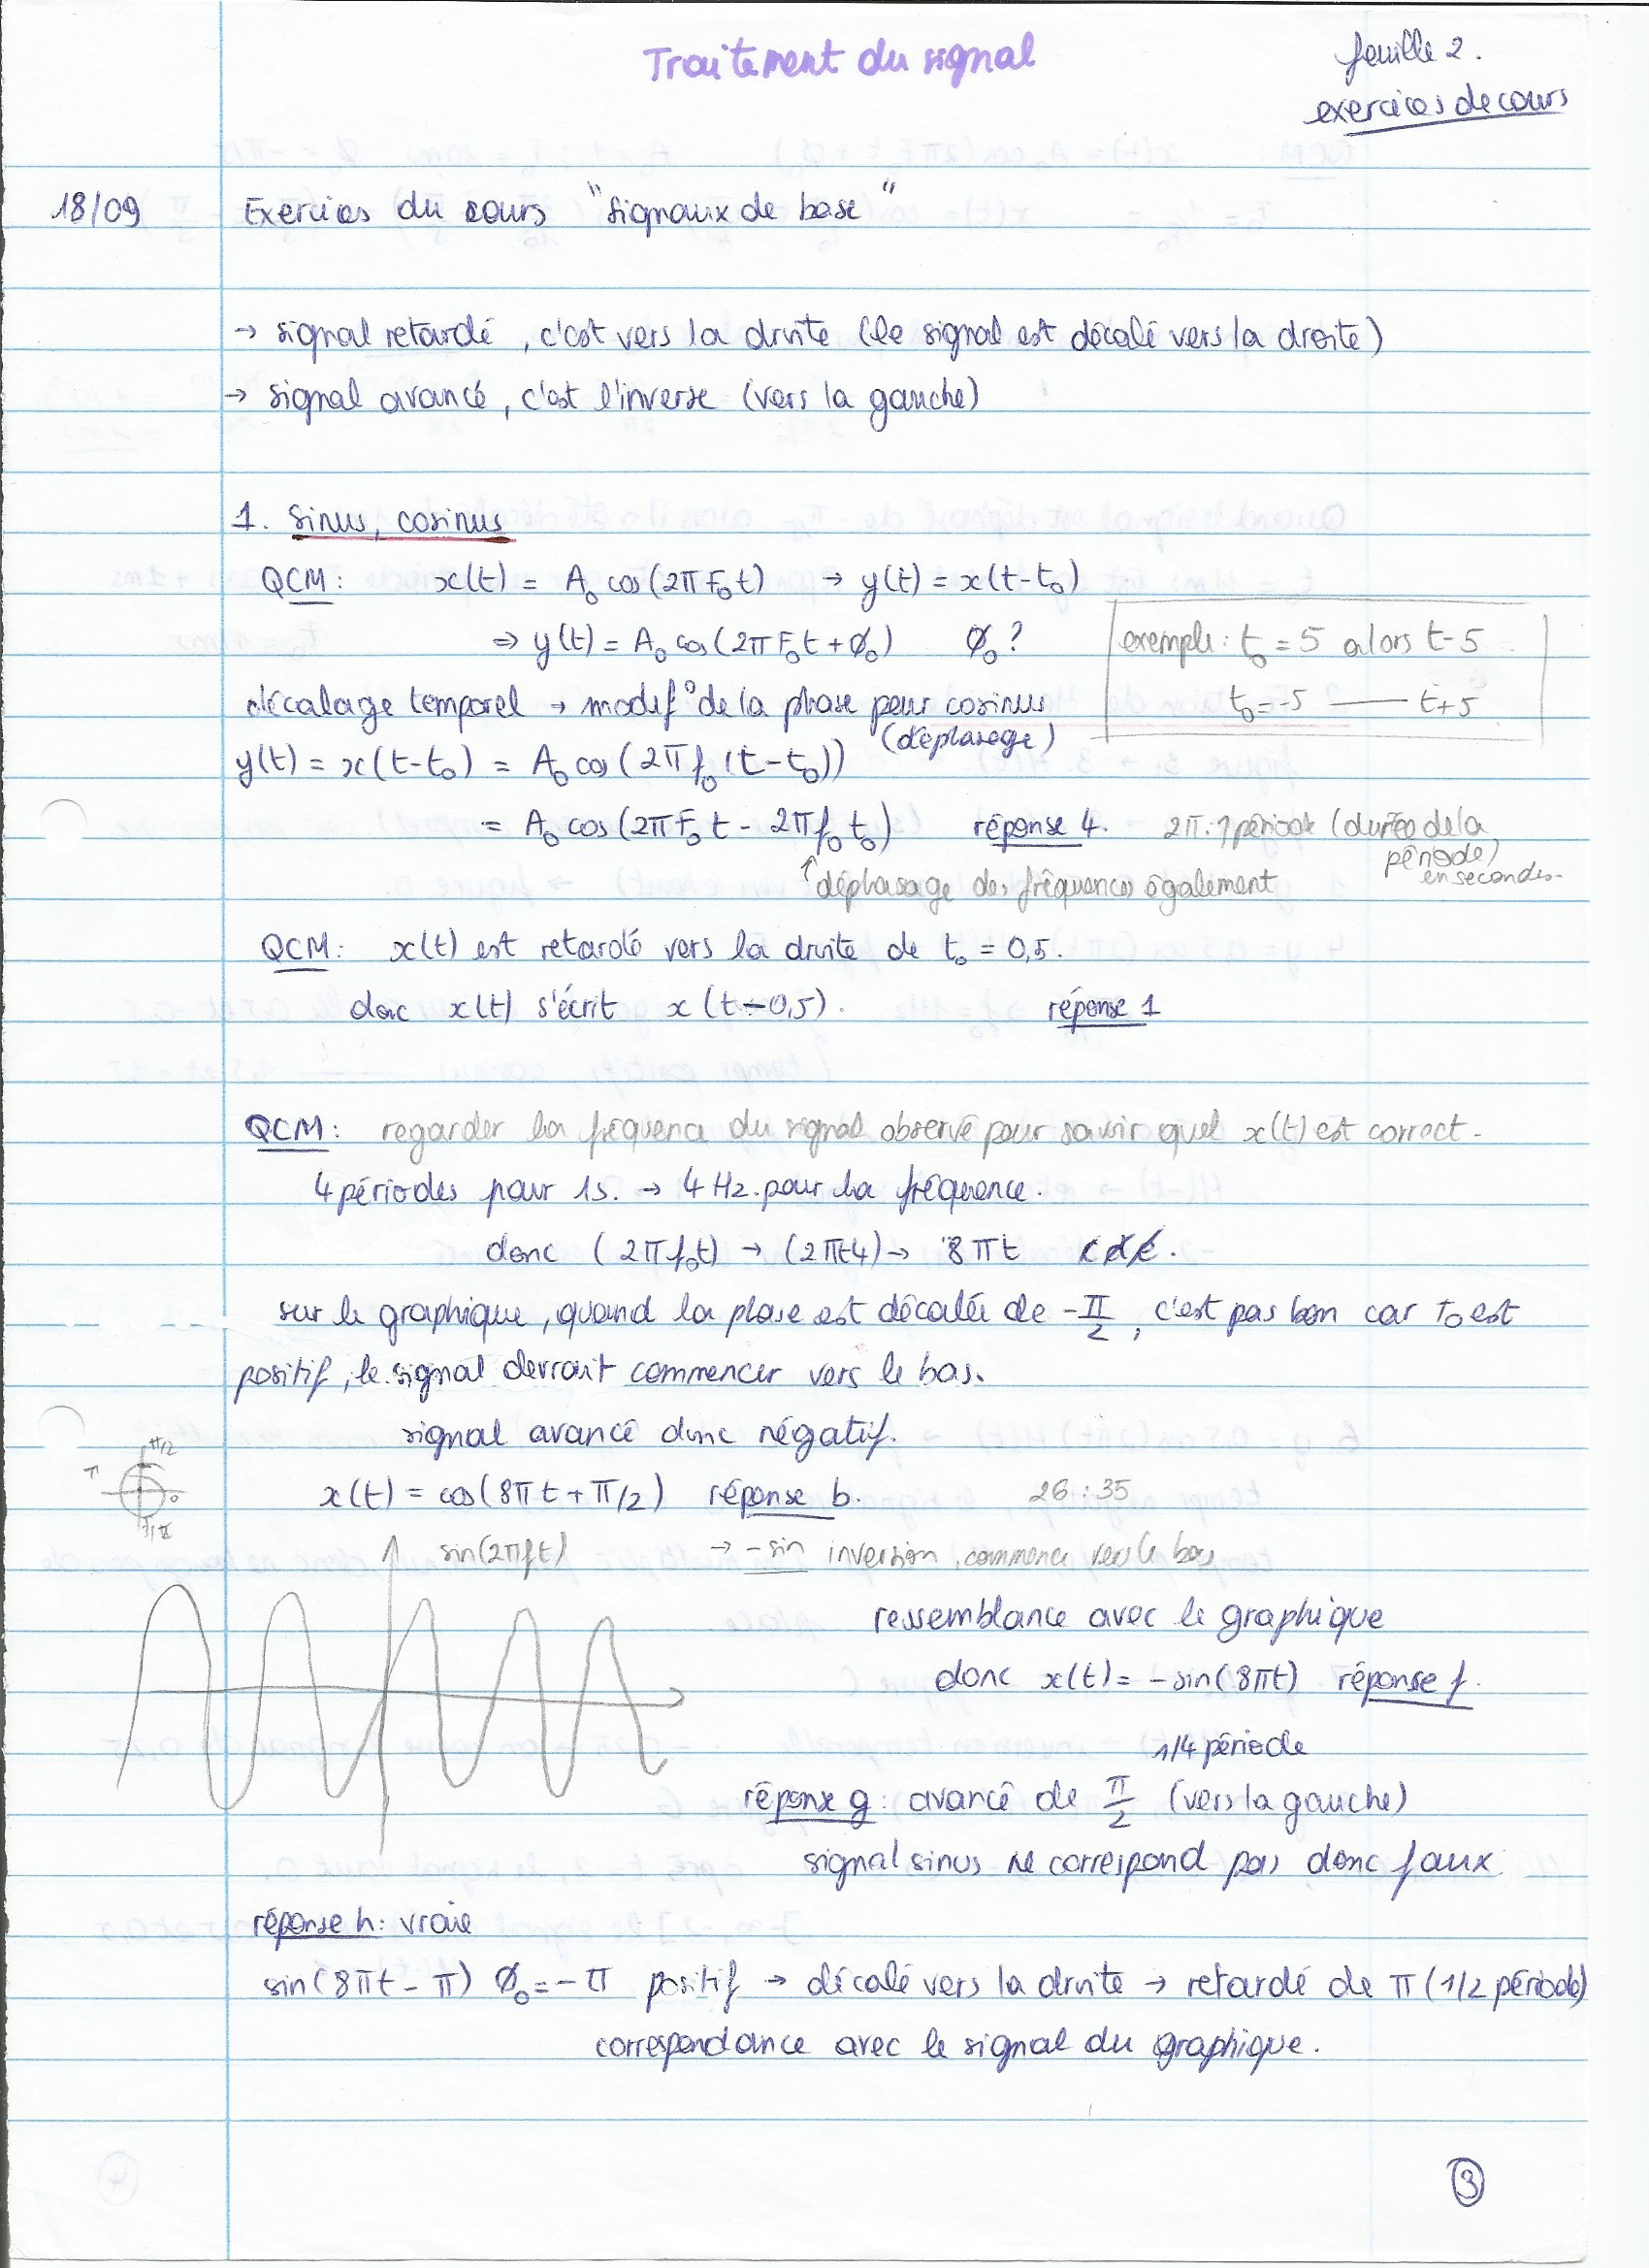 Traitement du signal
feuille 2.
exercices de cours
18/09 Exercices du cours "signaux de base"
→ signal retardé, c'est vers la droite (le signal est décalé vers la droite)
→ signal avancé, c'est l'inverse (vers la gauche)
1. Sinus, cosinus
QCM: x(t) = A₀ cos(2πF₀t) → y(t) = x(t-t₀)
⇒ y(t) = A₀ cos(2πF₀t + Ø₀) Ø₀?
exemple: t₀ = 5 alors t-5
t₀ = -5 —— t+5
décalage temporel → modif° de la phase pour cosinus
(déphasage)
y(t) = x(t-t₀) = A₀ cos(2πf₀(t-t₀))
= A₀ cos(2πF₀t - 2πf₀t₀) réponse 4. 2π: 1 période (durée de la
période)
en secondes.
↑ déphasage des fréquences également
QCM: x(t) est retardé vers la droite de t₀ = 0,5.
donc x(t) s'écrit x(t-0,5). réponse 1
QCM: regarder la fréquence du signal observé pour savoir quel x(t) est correct.
4 périodes pour 1s. → 4 Hz pour la fréquence.
donc (2πf₀t) → (2πt4) → 8πt c d e.
sur le graphique, quand la phase est décalée de -π/2, c'est pas bon car T₀ est
positif, le signal devrait commencer vers le bas.
signal avancé donc négatif.
π/2
0
x(t) = cos(8πt + π/2) réponse b. 26:35
sin(2πft) → -sin inversion, commence vers le bas
ressemblance avec le graphique
donc x(t) = -sin(8πt) réponse f.
1/4 période
réponse g: avancé de π/2 (vers la gauche)
signal sinus ne correspond pas donc faux.
réponse h: vraie
sin(8πt - π) Ø₀ = -π positif → décalé vers la droite → retardé de π (1/2 période)
correspondance avec le signal du graphique.
3